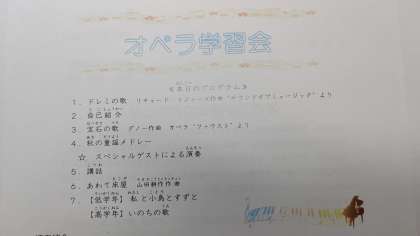 オペラ学習会
本日のプログラム
1．ドレミの歌 リチャード ロジャース作曲 "サウンドオブミュージック" より
2．自己紹介
3．宝石の歌 グノー作曲 オペラ "ファウスト" より
4．秋の童謡メドレー
☆ スペシャルゲストによる演奏
5．講話
6．あわて床屋 山田耕作作曲
7．【低学年】私と小鳥とすずと
【高学年】いのちの歌